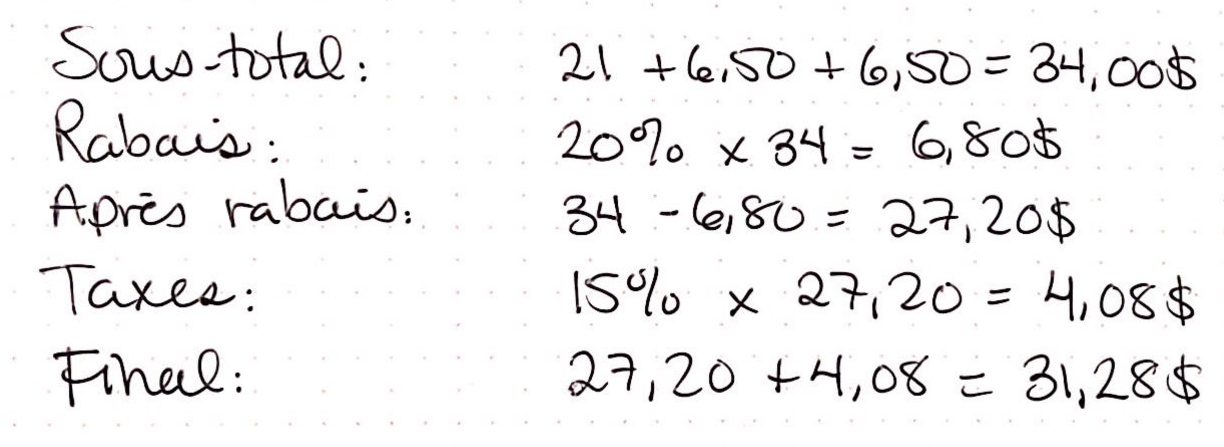 Sous-total: 21 + 6,50 + 6,50 = 34,00$
Rabais: 20% x 34 = 6,80$
Après rabais: 34 - 6,80 = 27,20$
Taxes: 15% x 27,20 = 4,08$
Final: 27,20 + 4,08 = 31,28$